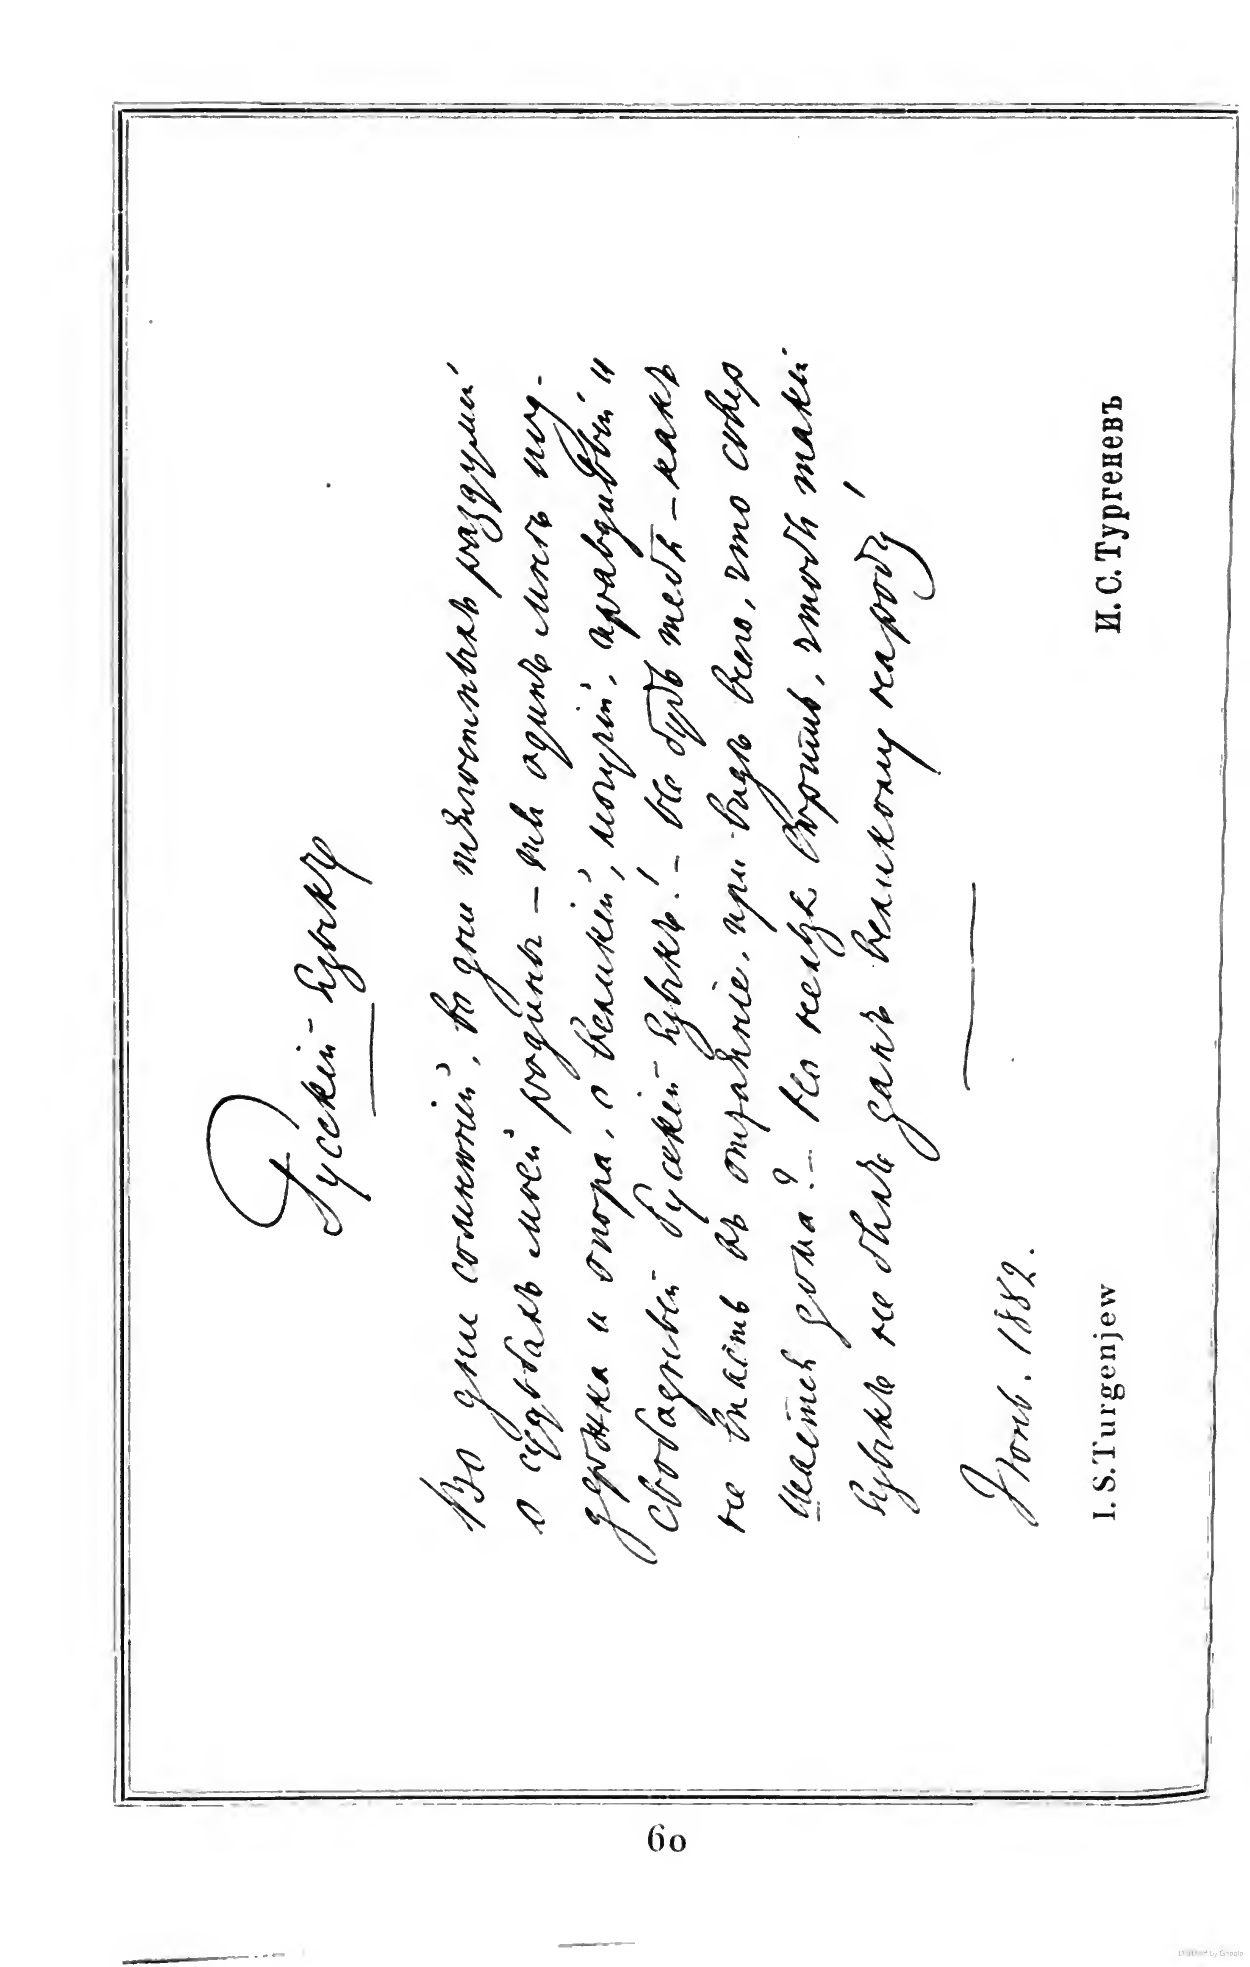 Русскій языкъ
Во дни сомнѣній, во дни тягостныхъ раздумій
о судьбахъ моей родины – ты одинъ мнѣ под-
держка и опора, о великій, могучій, правдивый и
свободный Русскій языкъ! – Не будь тебя – какъ
не впасть въ отчаяніе, при видѣ всего, что совер
шается дома? – Но нельзя вѣрить, чтобы такой
языкъ не былъ данъ великому народу!
Іюнь. 1882.
I. S. Turgenjew
И. С. Тургеневъ
60
Digitized by Google